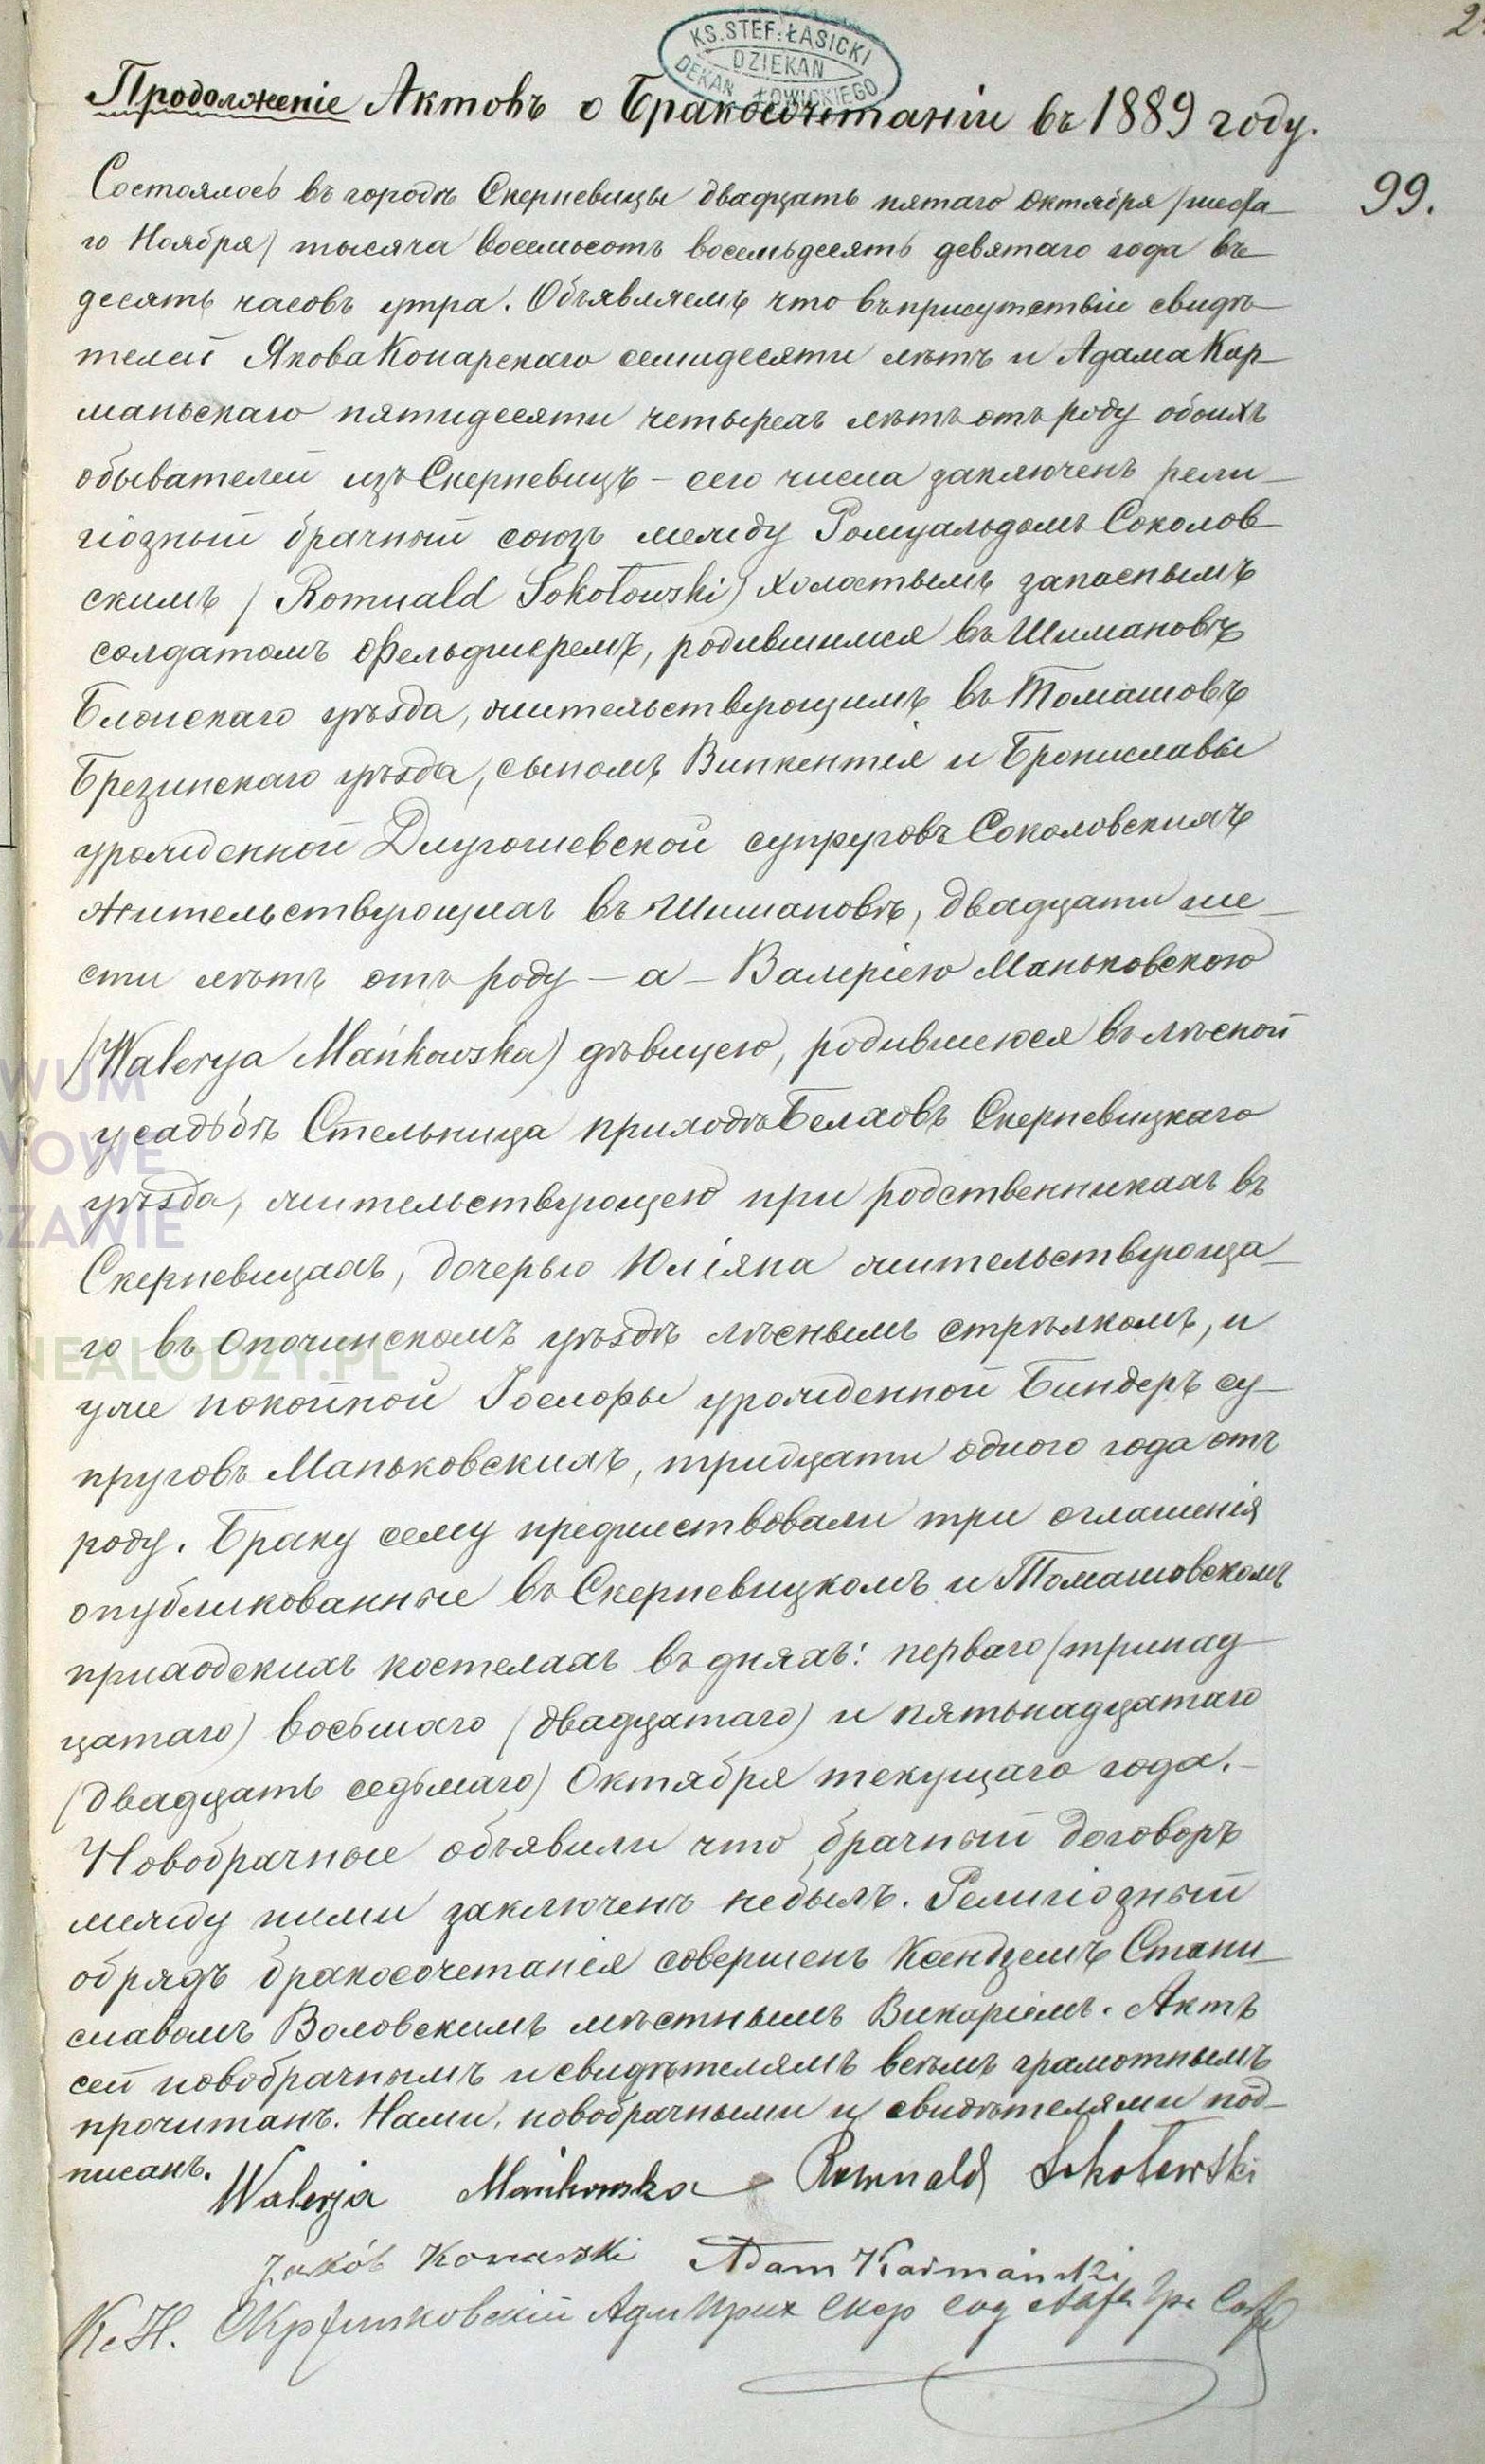 2
KS. STEF. ŁASICKI
DZIEKAN
DEKAN ŁOWICKIEGO
Продолженіе Актовъ о Бракосочетаніи въ 1889 году.
99.
Состоялось въ городѣ Скерневицы двадцать пятаго Октября /шеста-
го Ноября/ тысяча восемьсотъ восемьдесятъ девятаго года въ
десять часовъ утра. Объявляемъ что въ присутствіи свидѣ-
телей Якова Конарскаго семидесяти лѣтъ и Адама Кар-
маньскаго пятидесяти четырехъ лѣтъ отъ роду обоихъ
обывателей изъ Скерневицъ - сего числа заключенъ рели-
гіозный брачный союзъ между Ромуальдомъ Соколов-
скимъ /Romuald Sokołowski/ холостымъ запаснымъ
солдатомъ фельдшеремъ, родившимся въ Шимановѣ
Блонскаго уѣзда, жительствующимъ въ Томашовѣ
Брезинскаго уѣзда, сыномъ Викентія и Брониславы
урожденной Длугошевской супруговъ Соколовскихъ
жительствующихъ въ Шимановѣ, двадцати ше-
сти лѣтъ отъ роду - а - Валеріею Маньковскою
/Walerya Mańkowska/ дѣвицею, родившеюся въ лѣсной
усадьбѣ Стельница приходѣ Белховъ Скерневицкаго
уѣзда, жительствующею при родственникахъ въ
Скерневицахъ, дочерью Юліяна жительствующа-
го въ Опочинскомъ уѣздѣ лѣснымъ стрѣлкомъ, и
уже покойной Іосифы урожденной Биндеръ су-
пруговъ Маньковскихъ, тридцати одного года отъ
роду. Браку сему предшествовали три оглашенія
опубликованные въ Скерневицкомъ и Томашовскомъ
приходскихъ костелахъ въ дняхъ: перваго /тринад
цатаго) восьмаго (двадцатаго) и пятьнадцатаго
(двадцать седьмаго) Октября текущаго года. -
Новобрачные объявили что брачный договоръ
между ними заключенъ небылъ. Религіозный
обрядъ бракосочетанія совершенъ Ксендземъ Стани-
славомъ Воловскимъ мѣстнымъ Викаріемъ. Актъ
сей новобрачнымъ и свидѣтелямъ всѣмъ грамотнымъ
прочитанъ. Нами, новобрачными и свидѣтелями под-
писанъ.
Walerja Mańkowska Romuald Sokołowski
Jakób Konarski Adam Karmański
Кс. Н. Адм Прих Скер
WUM
NOWE
SZAWIE
NEALODZY.PL